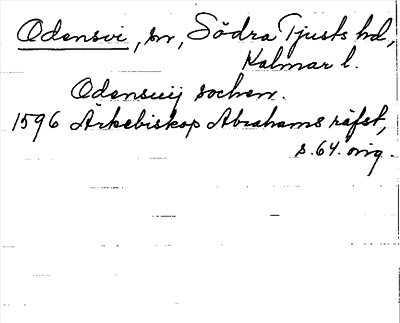 Odensvi, sn, Södra Tjusts hd,
Kalmar l.
Odensuij sochen.
1596 Ärkebiskop Abrahams räfst,
s. 64. orig.